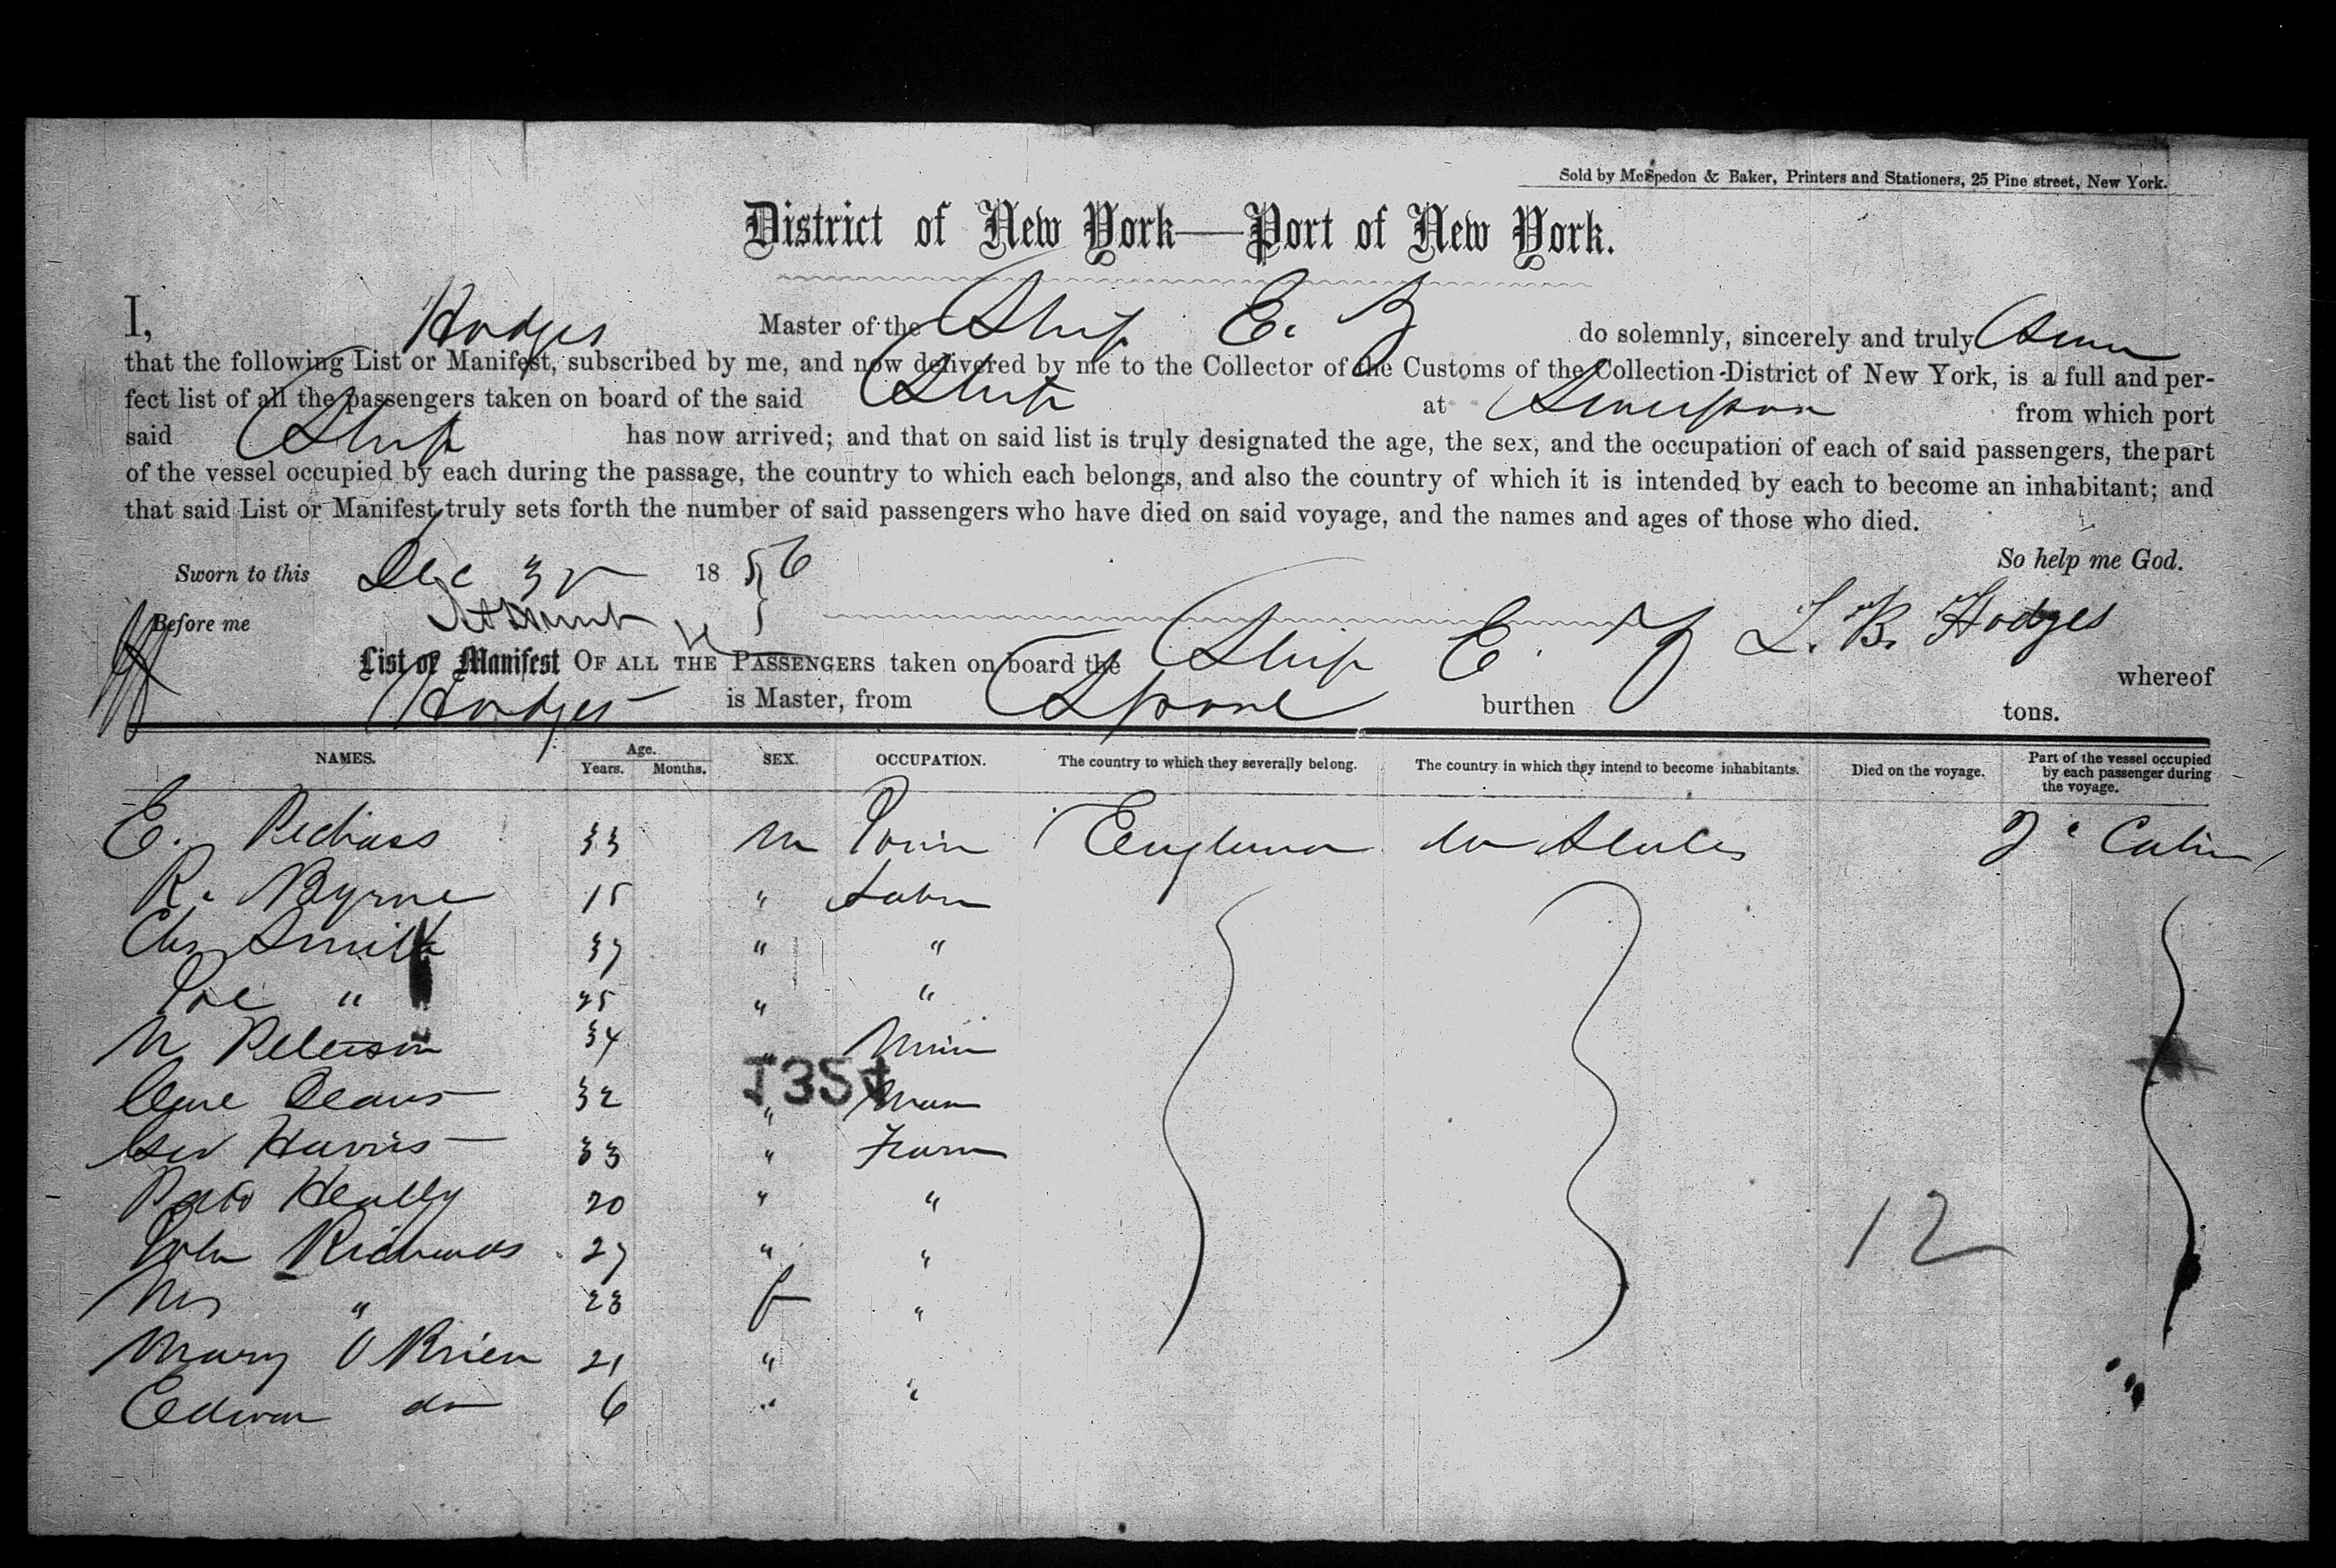 Sold by McSpedon & Baker, Printers and Stationers, 25 Pine street, New York.
District of New York—Port of New York.
I, Hodges Master of the Ship E. Z do solemnly, sincerely and truly
that the following List or Manifest, subscribed by me, and now delivered by me to the Collector of the Customs of the Collection District of New York, is a full and per-
fect list of all the passengers taken on board of the said Ship at from which port
said Ship has now arrived; and that on said list is truly designated the age, the sex, and the occupation of each of said passengers, the part
of the vessel occupied by each during the passage, the country to which each belongs, and also the country of which it is intended by each to become an inhabitant; and
that said List or Manifest truly sets forth the number of said passengers who have died on said voyage, and the names and ages of those who died.
So help me God.
Sworn to this Dec 1856
Before me
L. B. Hodges
List or Manifest OF ALL THE PASSENGERS taken on board the Ship E. Z whereof
Hodges is Master, from burthen tons.
NAMES. Age. Years. Months. SEX. OCCUPATION. The country to which they severally belong. The country in which they intend to become inhabitants. Died on the voyage. Part of the vessel occupied by each passenger during the voyage.
E. 33 M States Cabin
R. Byrne 15 "
Chs Smith 37 " "
" 25 " "
N Peterson 34 "
32 "
Geo Harris 33 " Farm
Healey 20 " "
John Richards 27 " "
Mrs " 23 f "
Mary O Brien 21 " "
Edwar do 6 " "
12